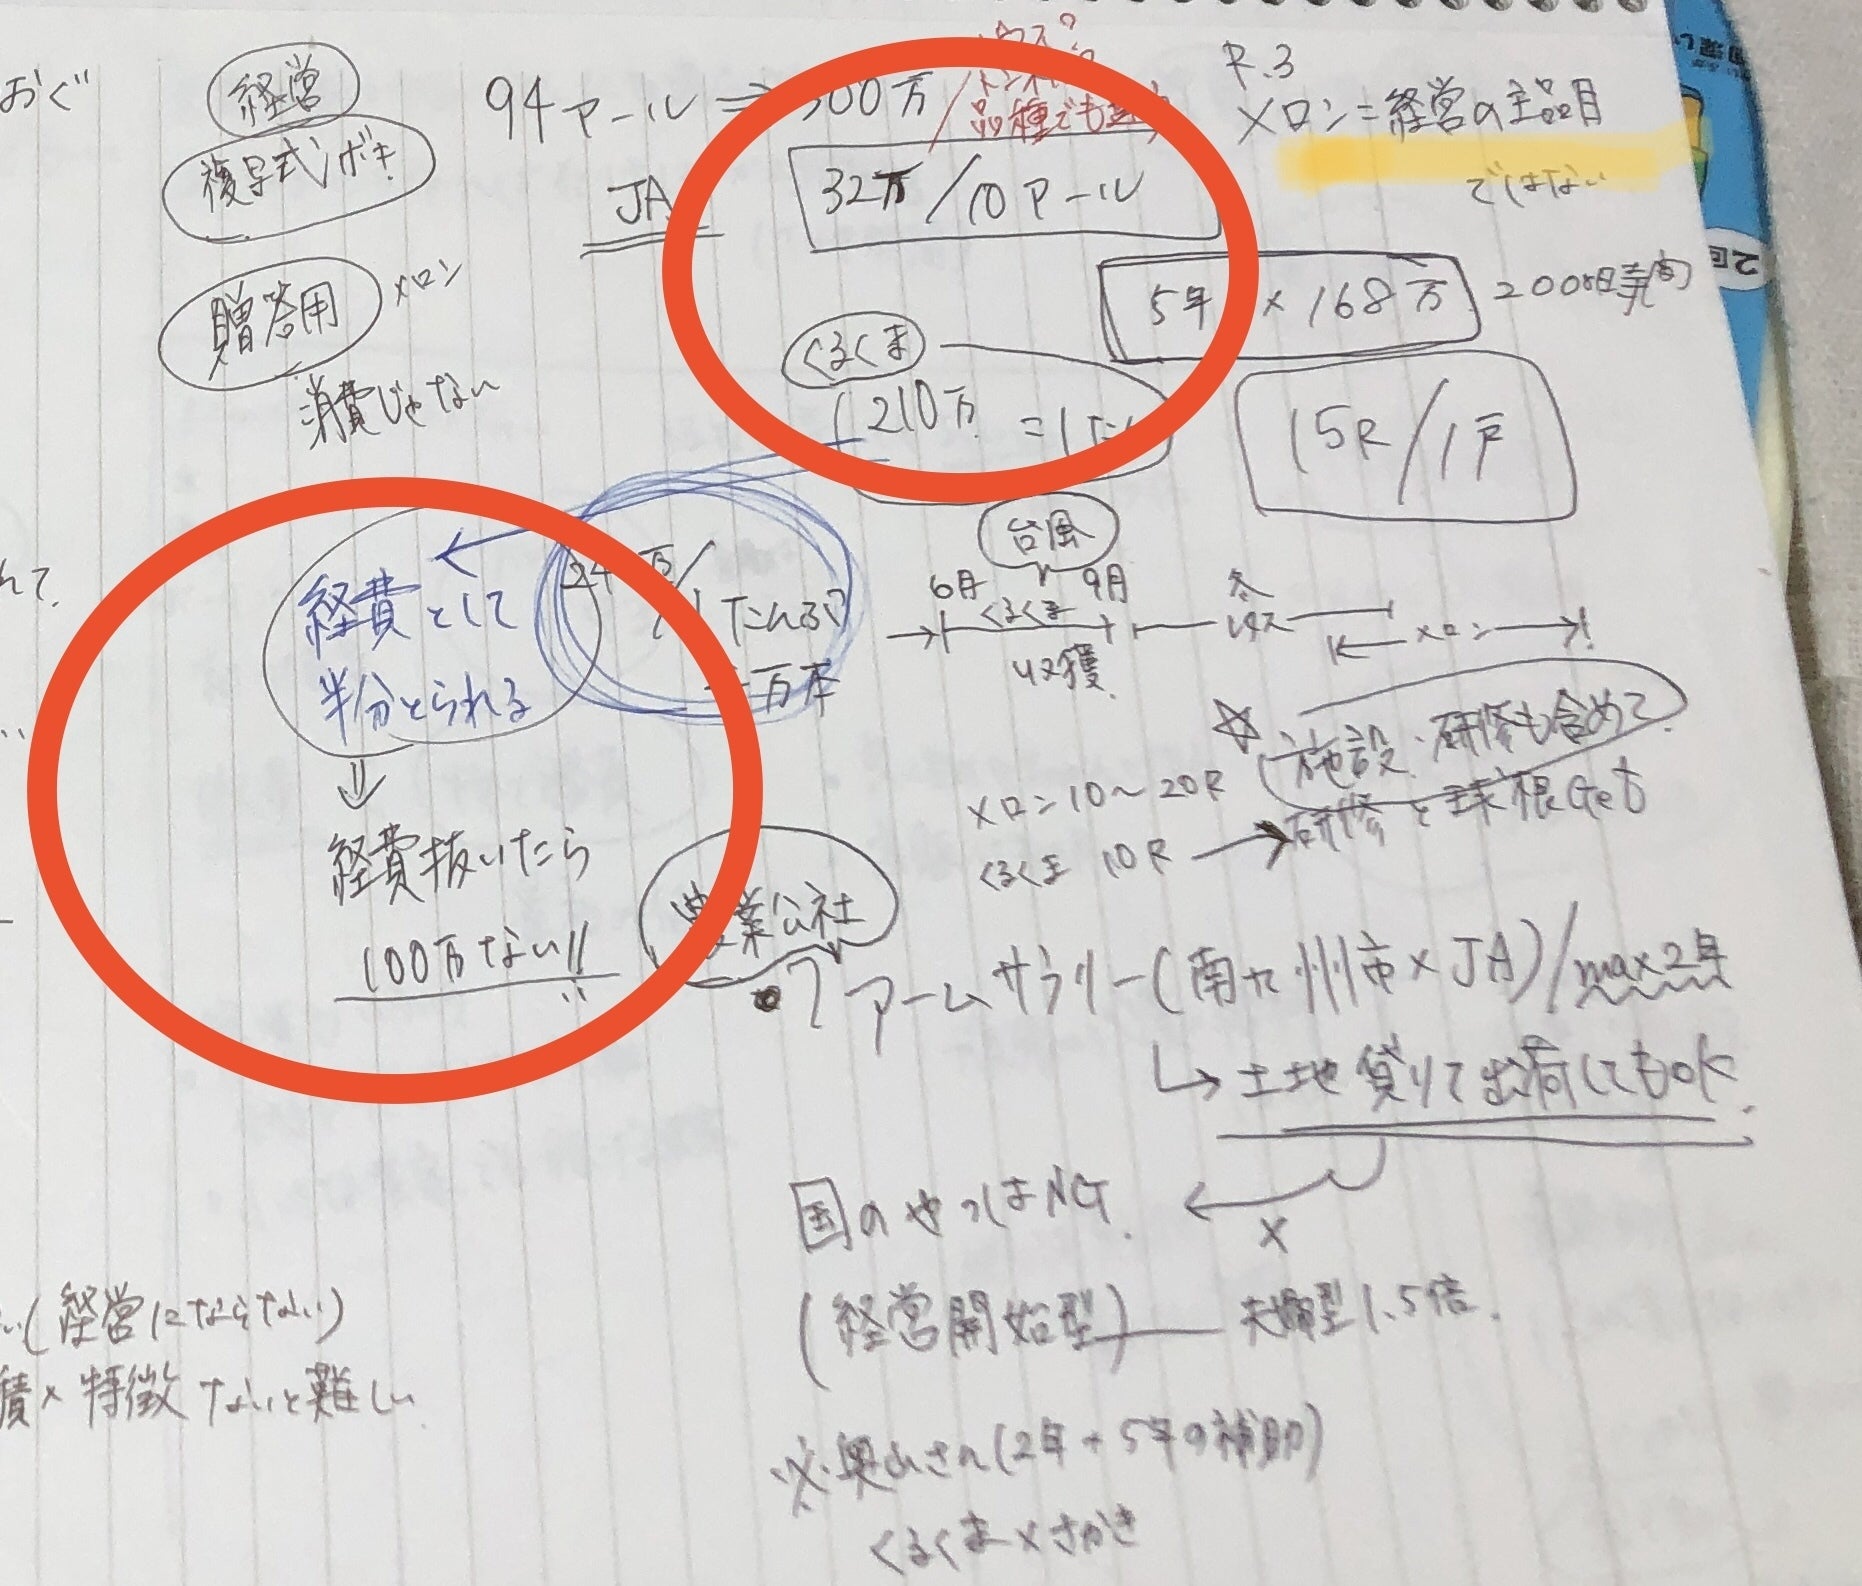 おぐ
経営
複号式ボキ
94アール⇒300万
品種でも違う
JA
32万/10アール
P.3
メロン=経営の主品目
ではない
贈答用
メロン
消費じゃない
5年 × 168万
くるくま
210万 =1たん
15R/1戸
台風
6月 くるくま 9月
収獲
冬
レタス
メロン
経費として
半分とられる
24万/1たんぶ
一万本
☆施設・研修も含めて
メロン10〜20R
くるくま 10R → 研修と球根Get
経費抜いたら
100万ない!!
農業公社
・ファームサラリー(南九州市×JA)/max2年
↳土地貸りて出荷してもOK.
国のやつはNG.
×
(経営開始型) 夫婦型1.5倍.
※奥山さん(2年+5年の補助)
くるくま×さかき
(経営にならない)
積×特徴ないと難しい